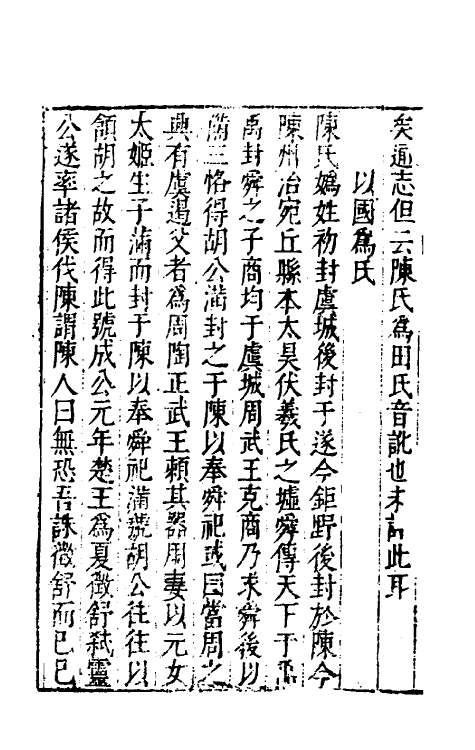 矣通志但云陳氏為田氏音訛也未訂此耳
以國為氏
陳氏媯姓初封虞城後封于遂今鉅野後封於陳今
陳州冶宛丘縣本太昊伏羲氏之墟舜傳天下于禹
禹封舜之子商均于虞城周武王克商乃求舜後以
備三恪得胡公滿封之于陳以奉舜祀或曰當周之
興有虞遏父者為周陶正武王賴其器用妻以元女
太姬生子滿而封于陳以奉舜祀滿號胡公往往以
頷胡之故而得此號成公元年楚王為夏徵舒弒靈
公遂率諸侯伐陳謂陳人曰無恐吾誅徵舒而已已